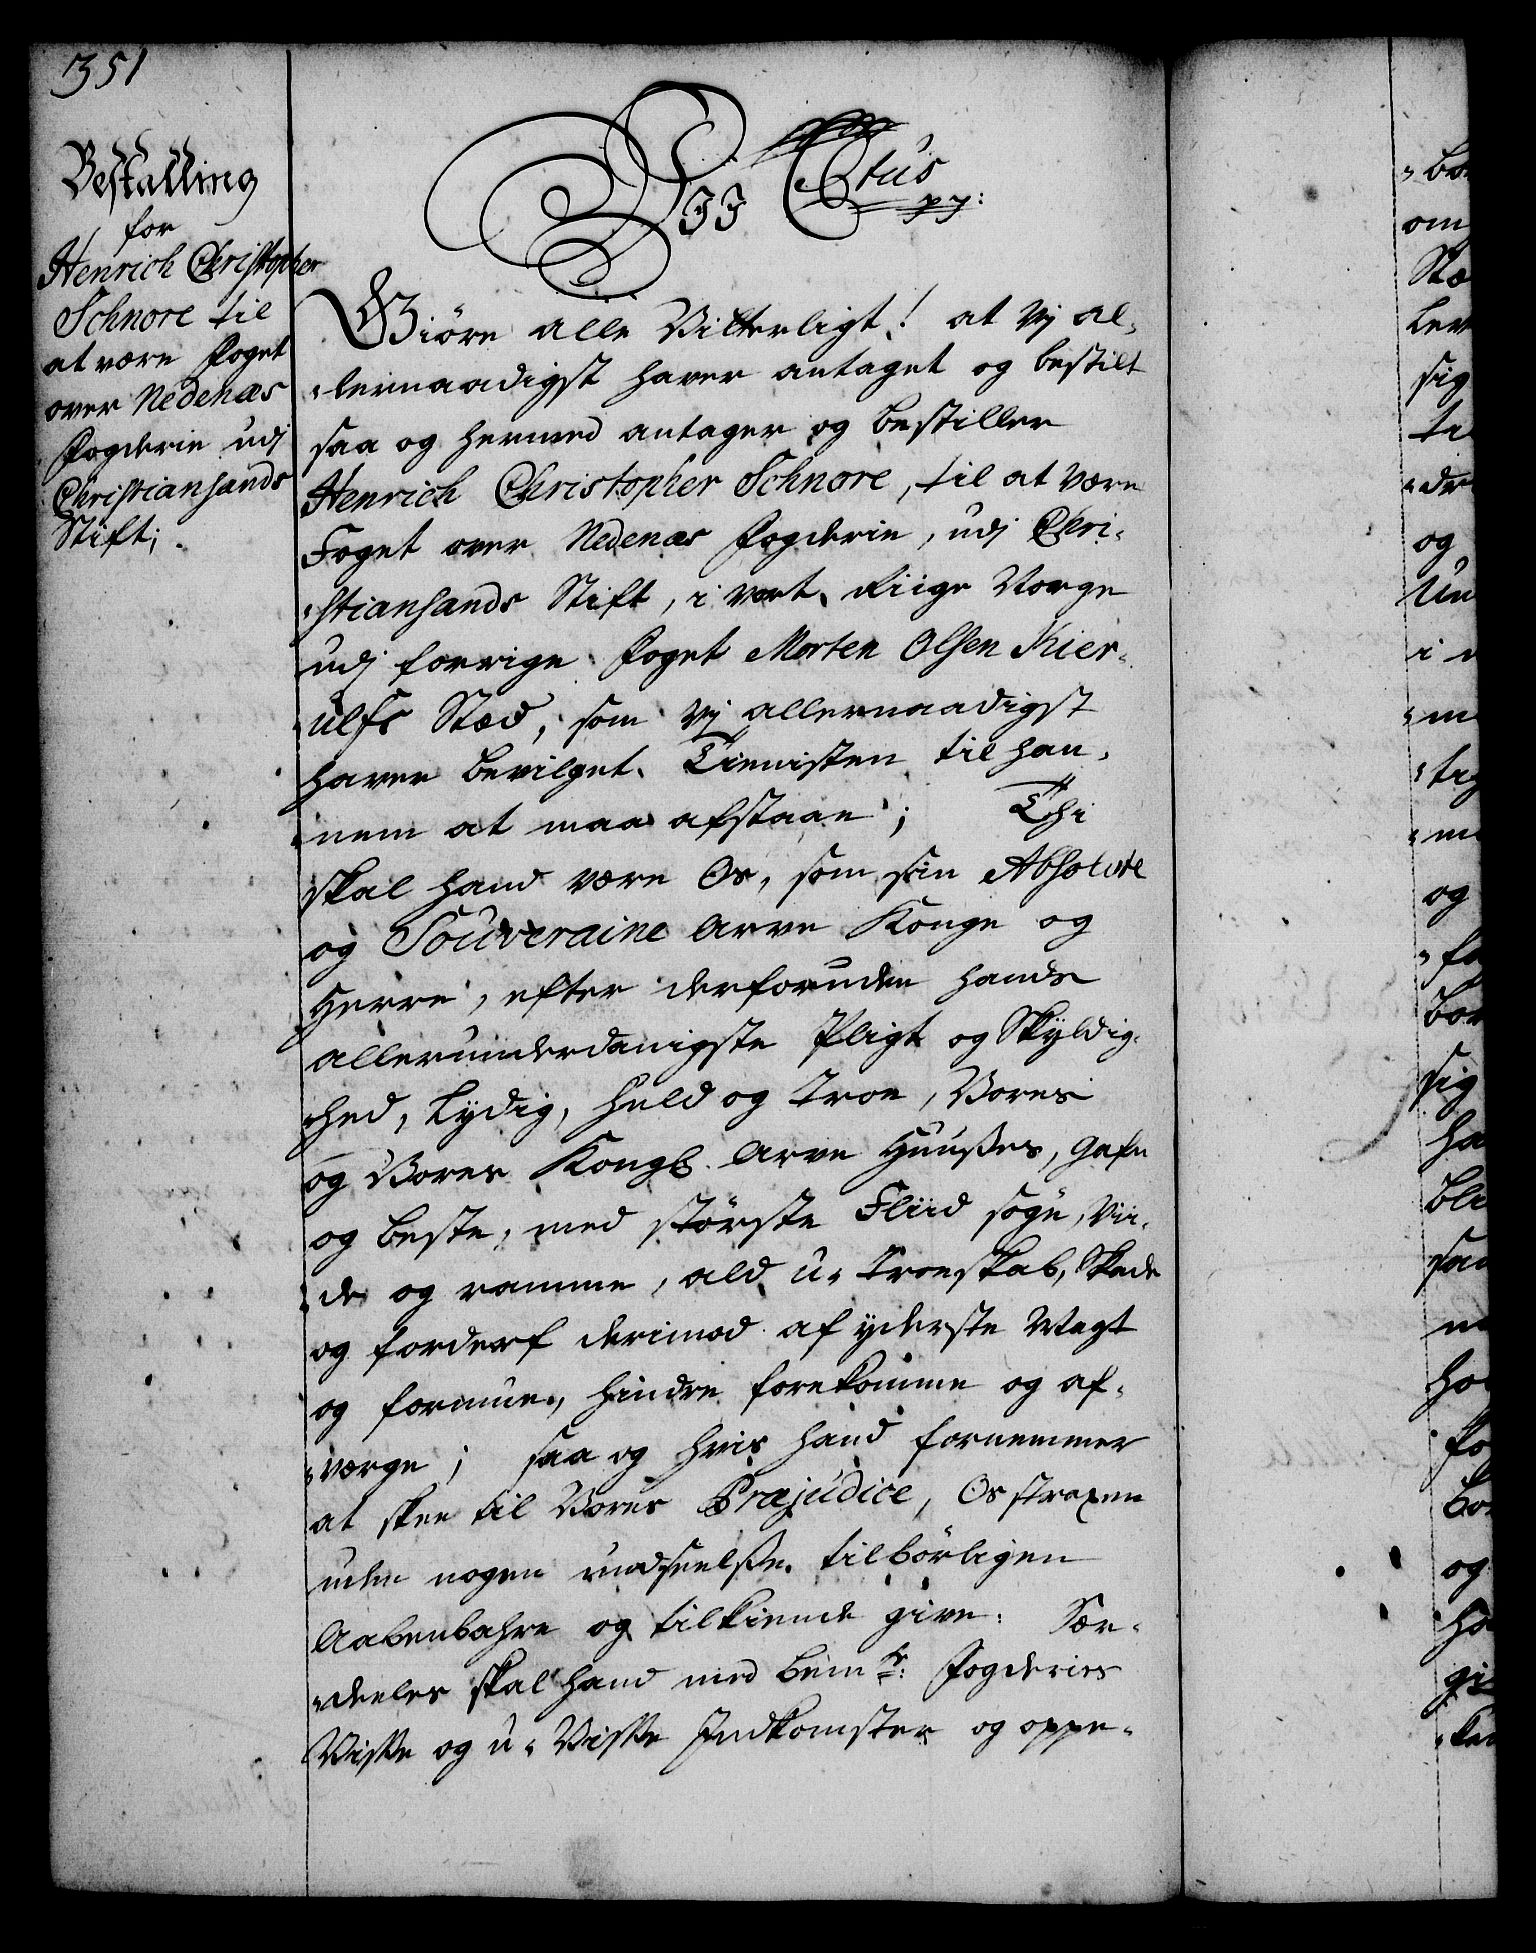 351
Bestalling
for
Henrich Christopher
Schnore til
at være Foget
over Nedenæs
Fogderie udj
Christiansands
Stift;
Vjj Ctus
pp:
Giöre alle Vitterligt! at Vj al-
lernaadigst haver antaget og bestilt
saa og hermed antager og bestiller
Henrich Christopher Schnore, til at være
Foget over Nedenæs Fogderie, udj Chri-
stiansands Stift, i vort Riige Norge
udj forrige Foget Morten Olsen Kier-
ulfs Stæd, som Vj allernaadigst
haver bevilget Tienisten til han-
nem at maa afstaae; Thi
skal hand være Os, som sin Absolute
og Souveraine Arve Konge og
Herre, efter derforuden hands
allerunderdanigste Pligt og Skyldig-
hed, Lydig, huld og Troe, Vores
og Vores Kongl. Arve Huuses, Gafn
og beste, med störste Fliid söge, Vii-
de og ramme, ald u-Troeskab, Skade
og forderf derimod af yderste Magt
og formue, hindre forekomme og af-
værge; saa og hvis hand fornemmer
at skee til Vores Præjudice, Os straxen
uden nogen undseelse tilbörligen
Aabenbahre og tilkiende give. Sær-
deeles skal hand med bemte: Fogderies
Visse og u-Visse Indkomster og oppe-